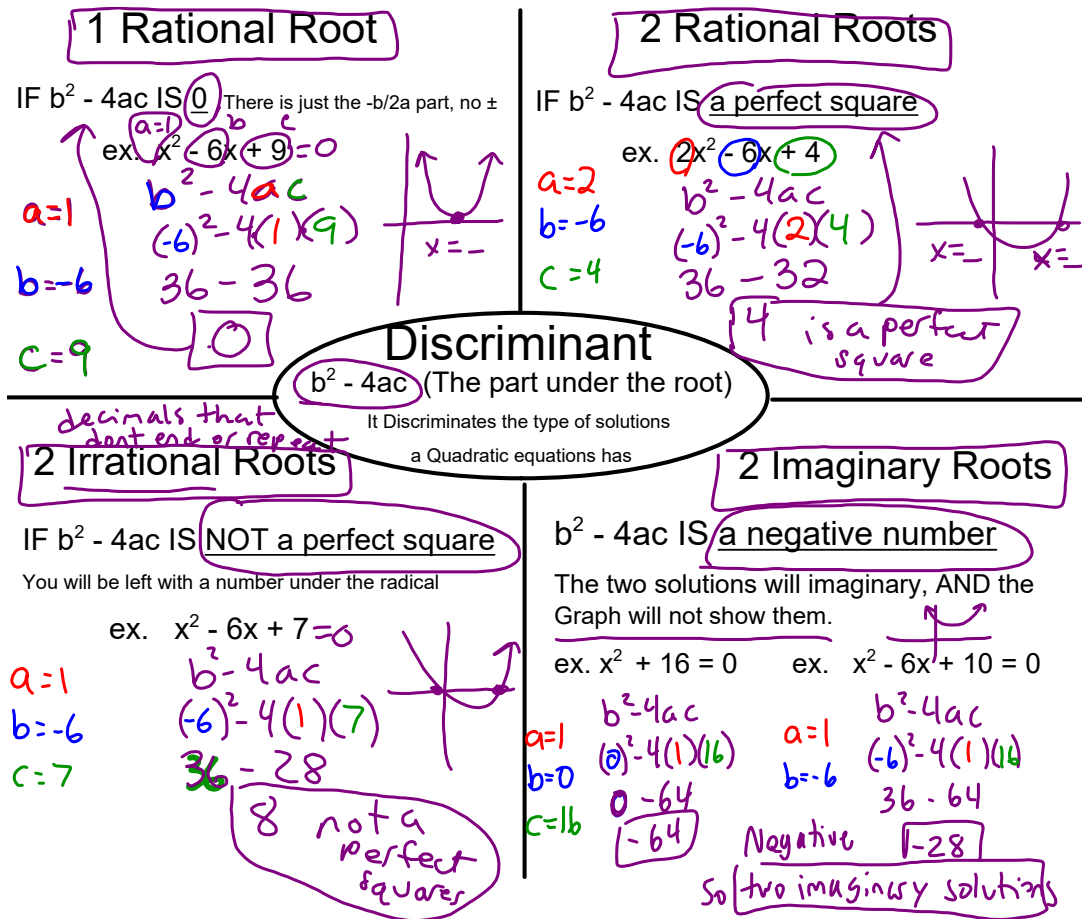 1 Rational Root
IF b² - 4ac IS 0 There is just the -b/2a part, no ±
a=1 b c
ex. x² - 6x + 9 = 0
b² - 4ac
a=1
(-6)² - 4(1)(9)
x = _
b=-6
36 - 36
0
c=9
2 Rational Roots
IF b² - 4ac IS a perfect square
ex. 2x² - 6x + 4
a=2
b² - 4ac
b=-6
(-6)² - 4(2)(4)
x=_ x=_
c=4
36 - 32
4 is a perfect
square
Discriminant
b² - 4ac (The part under the root)
It Discriminates the type of solutions
a Quadratic equations has
decimals that
dont end or repeat
2 Irrational Roots
IF b² - 4ac IS NOT a perfect square
You will be left with a number under the radical
ex. x² - 6x + 7 = 0
a=1
b² - 4ac
b=-6
(-6)² - 4(1)(7)
c=7
36 - 28
8 not a
perfect
squares
2 Imaginary Roots
b² - 4ac IS a negative number
The two solutions will imaginary, AND the
Graph will not show them.
ex. x² + 16 = 0
b² - 4ac
a=1
(0)² - 4(1)(16)
b=0
0 - 64
c=16
-64
ex. x² - 6x + 10 = 0
b² - 4ac
a=1
(-6)² - 4(1)(16)
b=-6
36 - 64
Negative -28
so two imaginary solutions